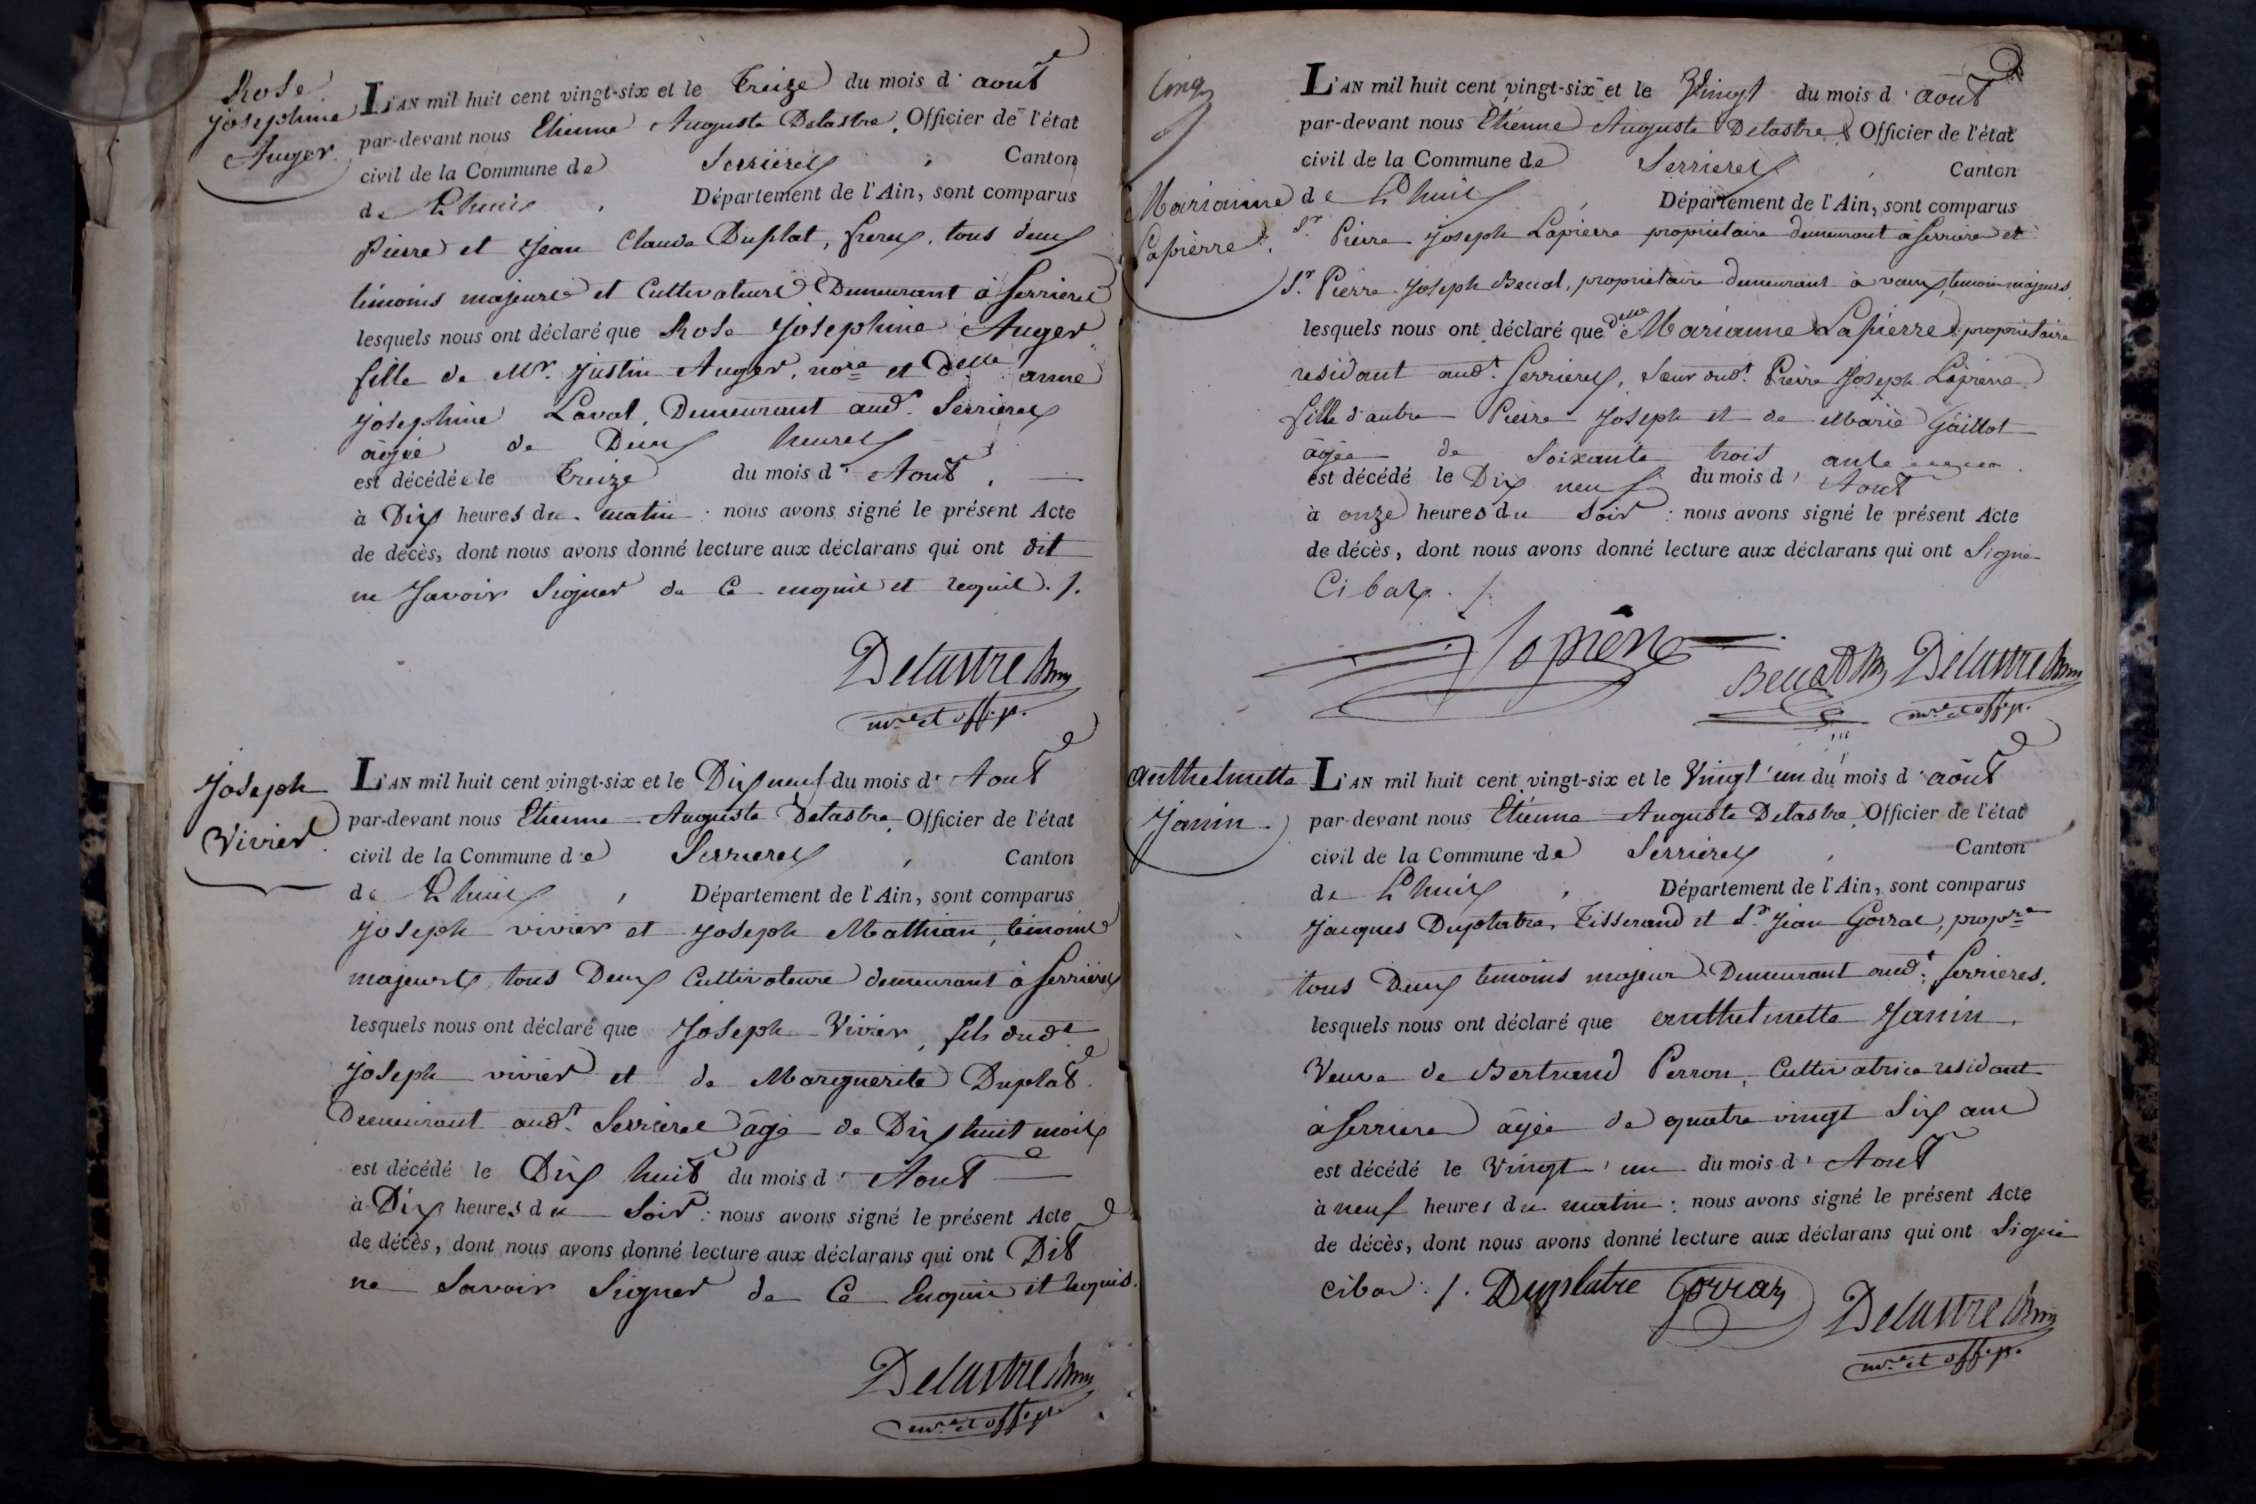 Rose
Josephine
Auger
L'AN mil huit cent vingt-six et le Treize du mois d'aout
par-devant nous Etienne Auguste Delastre, Officier de l'état
civil de la Commune de Serrieres, Canton
de Lhuis, Département de l'Ain, sont comparus
Pierre et Jean Claude Duplat, freres, tous deux
témoins majeurs et Cultivateurs Demeurant à Serrieres
lesquels nous ont déclaré que Rose Josephine Auger
fille de Mr. Justin Auger, nore et Delle anne
Josephine Laval, Demeurant aud. Serrieres
agée de Deux heures
est décédée le Treize du mois d'Aout,
à Dix heures du matin : nous avons signé le présent Acte
de décès, dont nous avons donné lecture aux déclarans qui ont dit
ne Savoir Signer de Ce enquis et requis ./.
Delastre
mre et off. p.
Joseph
Vivier
L'AN mil huit cent vingt-six et le Dix neuf du mois d'Aout
par-devant nous Etienne Auguste Delastre, Officier de l'état
civil de la Commune de Serrieres, Canton
de Lhuis, Département de l'Ain, sont comparus
Joseph vivier et Joseph Mathian, témoins
majeurs, tous Deux Cultivateurs demeurant à Serrieres
lesquels nous ont déclaré que Joseph Vivier, fils dudt.
Joseph vivier et de Marguerite Duplat
Demeurant audt. Serrieres agé de Dix huit mois
est décédé le Dix huit du mois d'Aout
à Dix heures du Soir : nous avons signé le présent Acte
de décès, dont nous avons donné lecture aux déclarans qui ont Dit
ne Savoir Signer de Ce Enquis et requis.
Delastre
mre et off. p.
Cinq
Marianne
Lapierre.
L'AN mil huit cent vingt-six et le Vingt du mois d'aout
par-devant nous Etienne Auguste Delastre, Officier de l'état
civil de la Commune de Serrieres, Canton
de Lhuis, Département de l'Ain, sont comparus
Sr. Pierre Joseph Lapierre propriétaire demeurant a Serrieres et
Sr. Pierre Joseph Becat, propriétaire demeurant à vaux, temoins majeurs,
lesquels nous ont déclaré que Delle Marianne Lapierre, propriétaire
residant audt. Serrieres, Sœur dudt. Pierre Joseph Lapierre
fille d'autre Pierre Joseph et de Marie Gaillot
âgée de soixante trois ans
est décédé le Dix neuf du mois d'Aout
à onze heures du Soir : nous avons signé le présent Acte
de décès, dont nous avons donné lecture aux déclarans qui ont Signé
Ci bas ./.
Lapierre
Delastre
mre et off. p.
Anthelmette
Janin.
L'AN mil huit cent vingt-six et le Vingt un du mois d'aôut
par-devant nous Etienne Auguste Delastre, Officier de l'état
civil de la Commune de Serrieres, Canton
de Lhuis, Département de l'Ain, sont comparus
Jacques Duplatre, Tisserand et Sr. Jean Gorraz, propre
tous Deux temoins majeurs Demeurant audt. Serrieres.
lesquels nous ont déclaré que anthelmette Janin,
Veuve de Bertrand Perron, Cultivatrice residant
à Serrieres âgée de quatre vingt Six ans
est décédé le Vingt un du mois d'Aout
à neuf heures du matin : nous avons signé le présent Acte
de décès, dont nous avons donné lecture aux déclarans qui ont Signé
cibas ./. Duplatre Gorraz
Delastre
mre et off. p.